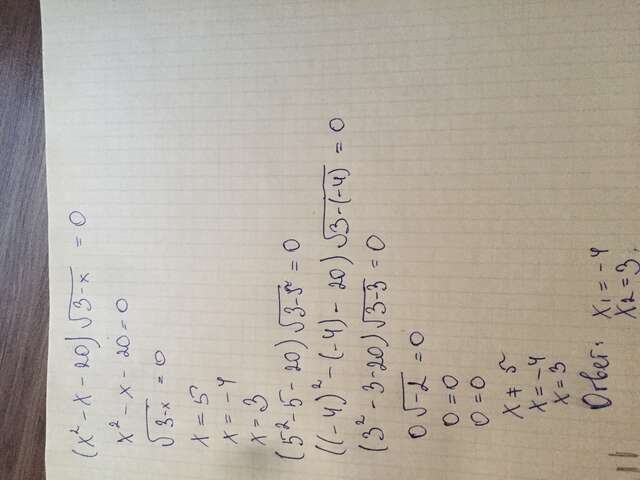 (x² - x - 20)√3-x = 0
x² - x - 20 = 0
√3-x = 0
x = 5
x = -4
x = 3
(5² - 5 - 20)√3-5 = 0
((-4)² - (-4) - 20)√3-(-4) = 0
(3² - 3 - 20)√3-3 = 0
0√-2 = 0
0 = 0
0 = 0
x ≠ 5
x = -4
x = 3
Ответ: x₁ = -4
x₂ = 3.